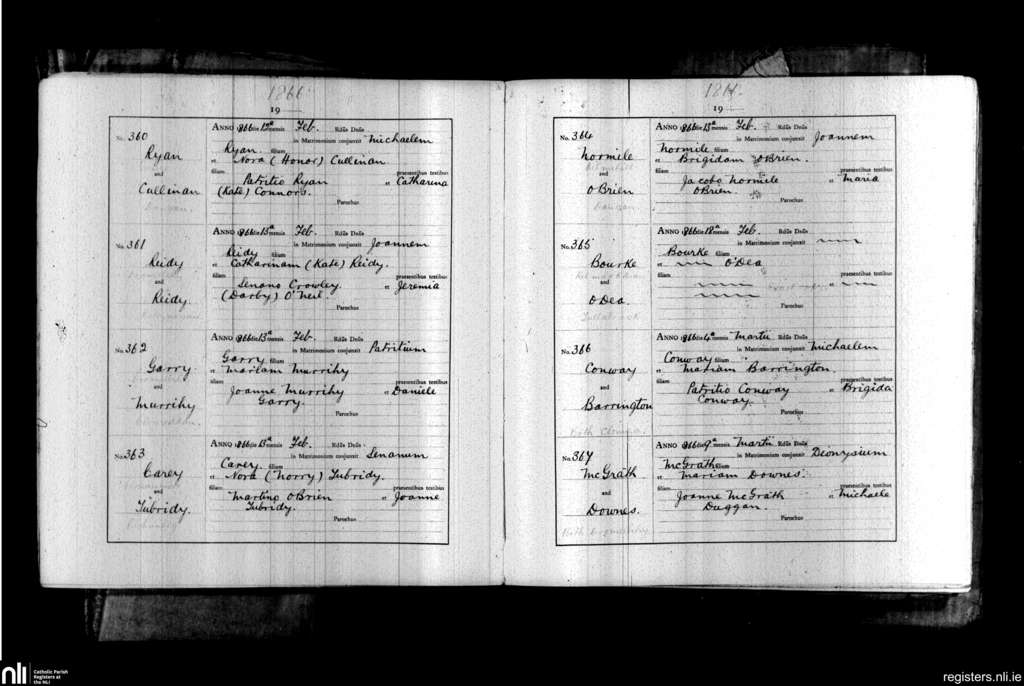 1866
19
No. 360
Ryan
and
Cullinan
ANNO 1866 die 13ª mensis Feb. Rdüs Dnüs
in Matrimonium conjunxit Michaelem
Ryan filium
et Nora (Honor) Cullinan
filiam praesentibus testibus
Patritio Ryan et Catharina
(Kate) Connors.
Parochus
No. 361
Reidy
and
Reidy.
ANNO 1866 die 13ª mensis Feb. Rdüs Dnüs
in Matrimonium conjunxit Joannem
Reidy filium
et Catharinam (Kate) Reidy.
filiam praesentibus testibus
Senano Crowley et Jeremia
(Darby) O'Neil.
Parochus
No. 362
Garry
and
Murrihy
ANNO 1866 die 13ª mensis Feb. Rdüs Dnüs
in Matrimonium conjunxit Patritium
Garry filium
et Mariam Murrihy
filiam praesentibus testibus
Joanne Murrihy et Daniele
Garry.
Parochus
No. 363
Carey
and
Tubridy.
ANNO 1866 die 13ª mensis Feb. Rdüs Dnüs
in Matrimonium conjunxit Senanum
Carey. filium
et Nora (Norry) Tubridy.
filiam praesentibus testibus
Martino O'Brien et Joanne
Tubridy.
Parochus
1866.
19
No. 364
Normile
and
O'Brien
ANNO 1866 die 13ª mensis Feb. Rdüs Dnüs
in Matrimonium conjunxit Joannem
Normile filium
et Brigidam O'Brien.
filiam praesentibus testibus
Jacobo Normile et Maria
O'Brien.
Parochus
No. 365
Bourke
and
O'Dea.
ANNO 1866 die 18ª mensis Feb. Rdüs Dnüs
in Matrimonium conjunxit
Bourke filium
et O'Dea
filiam praesentibus testibus
et
Parochus
No. 366
Conway
and
Barrington
ANNO 1866 die 4ª mensis Martii Rdüs Dnüs
in Matrimonium conjunxit Michaelem
Conway filium
et Mariam Barrington.
filiam praesentibus testibus
Patritio Conway et Brigida
Conway.
Parochus
No. 367
McGrath
and
Downes.
ANNO 1866 die 9ª mensis Martii Rdüs Dnüs
in Matrimonium conjunxit Dionysium
McGrath filium
et Mariam Downes.
filiam praesentibus testibus
Joanne McGrath et Michaele
Duggan.
Parochus
nli
Catholic Parish
Registers at
the NLI
registers.nli.ie